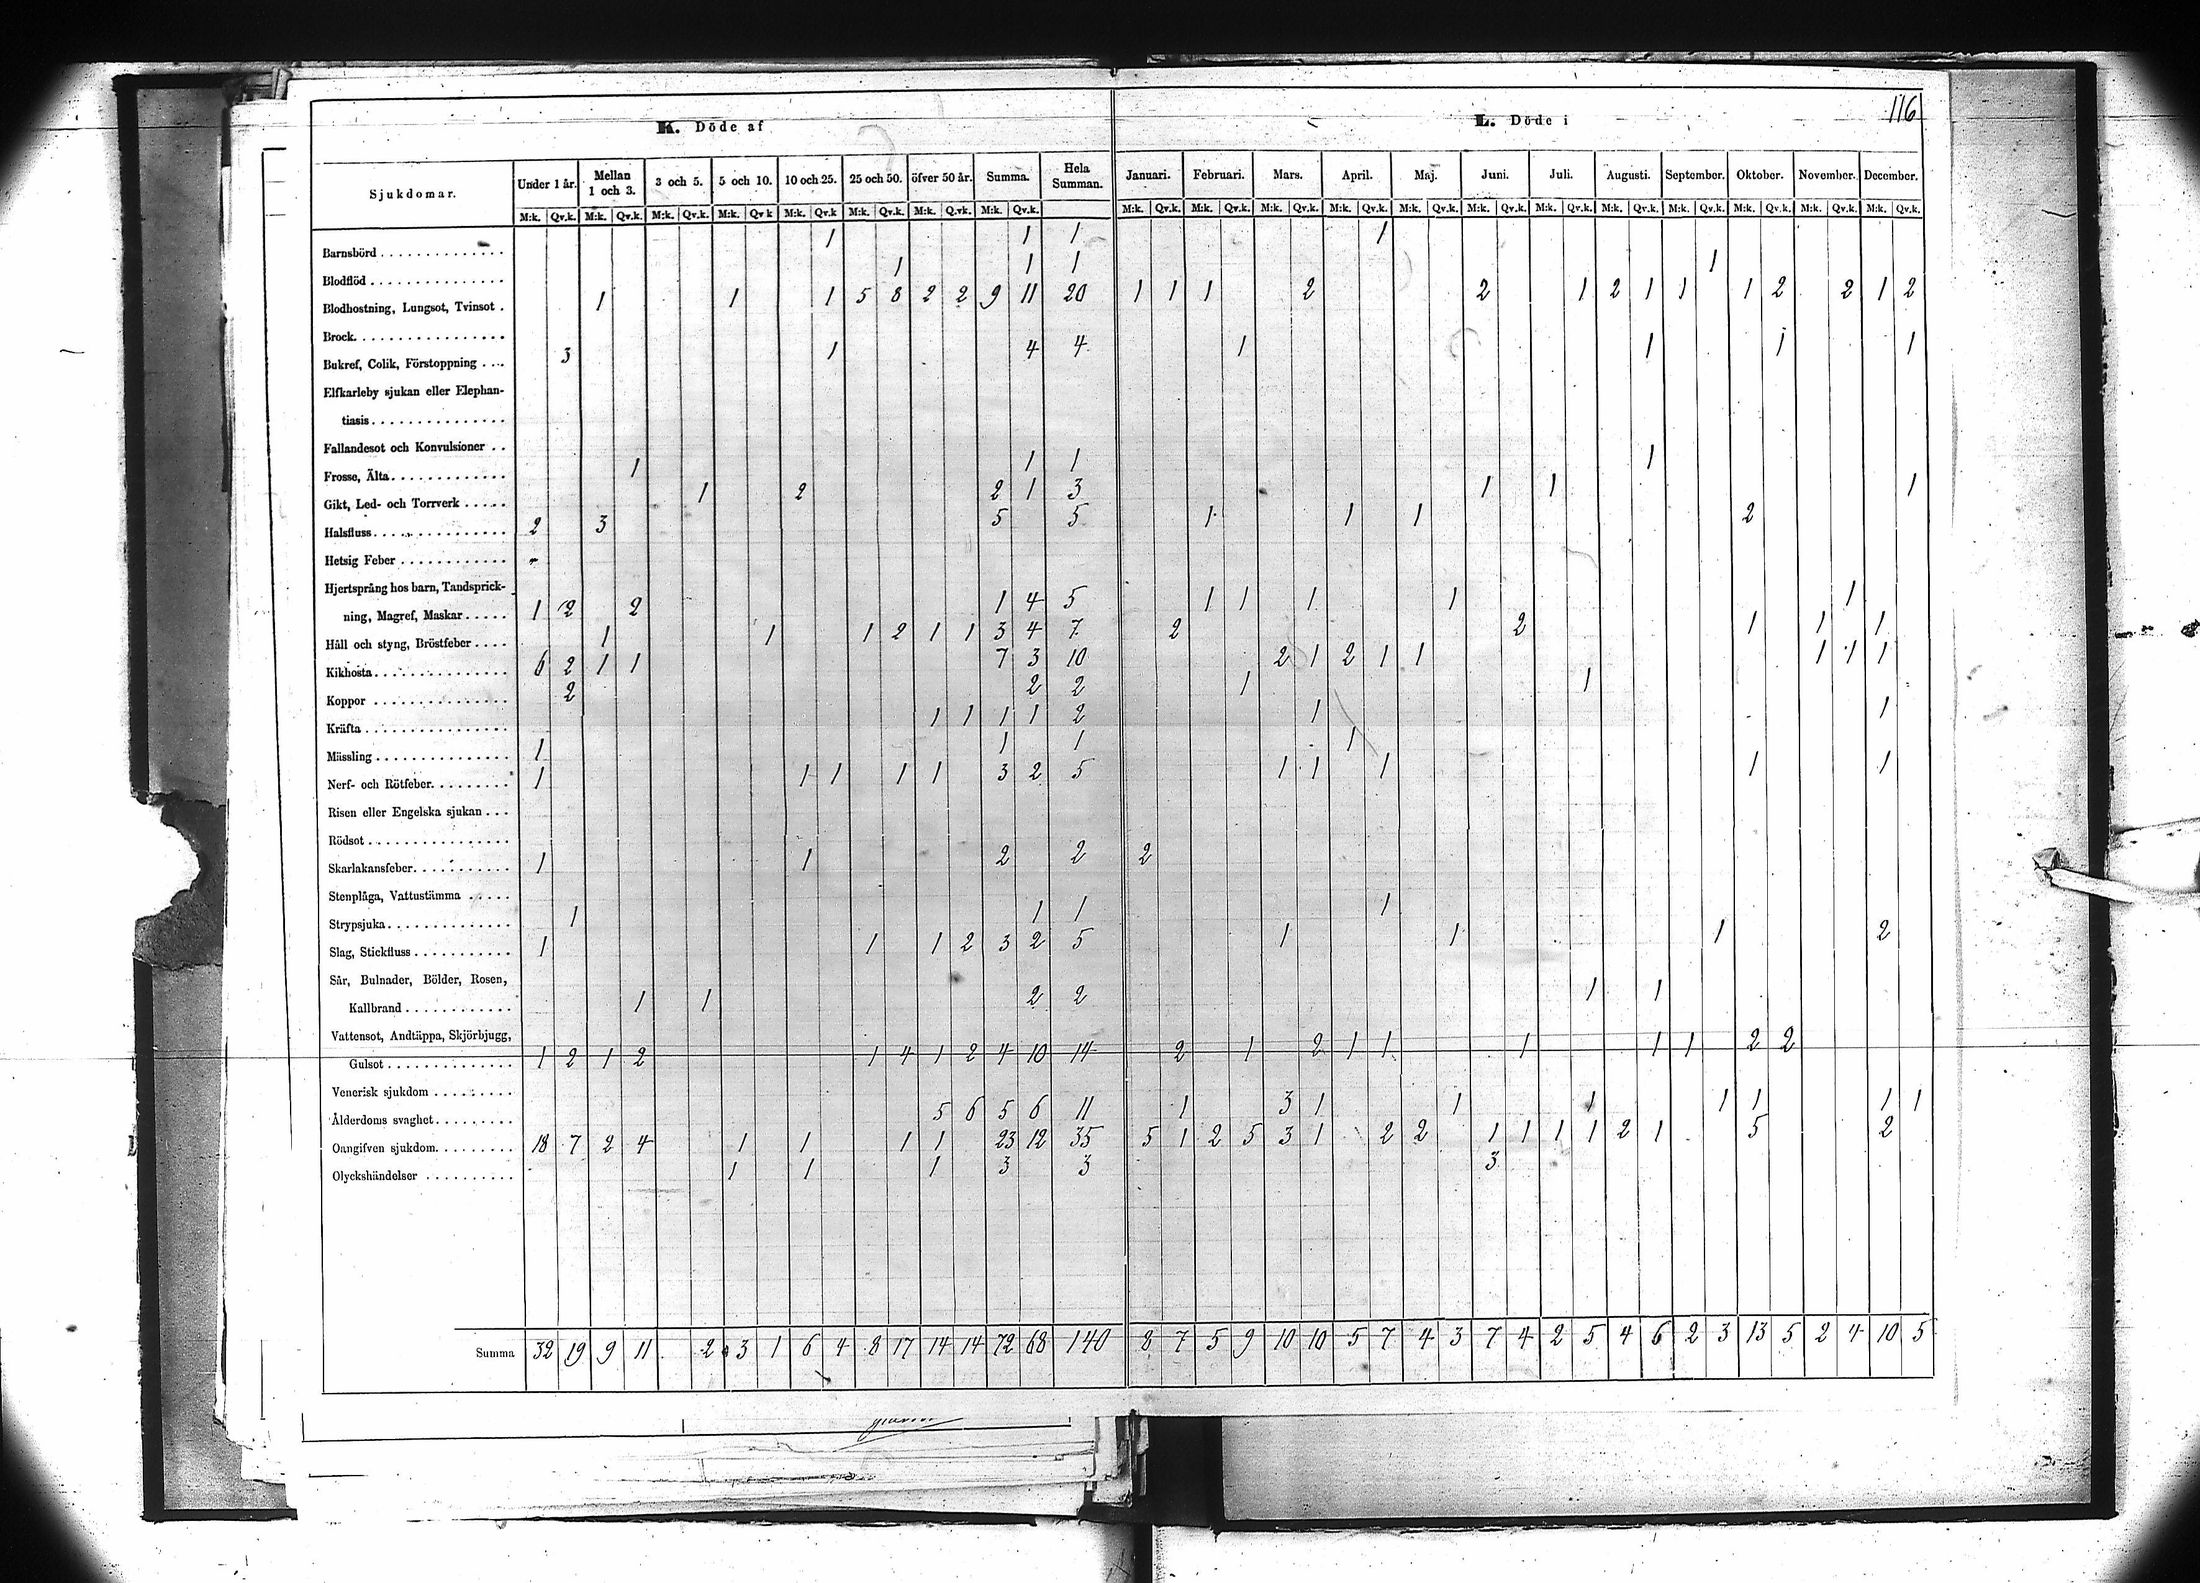 116
K. Döde af
L. Döde i
Sjukdomar. Under 1 år. Mellan 1 och 3. 3 och 5. 5 och 10. 10 och 25. 25 och 50. öfver 50 år. Summa. Hela Summan. Januari. Februari. Mars. April. Maj. Juni. Juli. Augusti. September. Oktober. November. December.
M:k. Qv.k. M:k. Qv.k. M:k. Qv.k. M:k. Qv.k M:k. Qv.k M:k. Qv.k. M:k. Q.vk. M:k. Qv.k. M:k. Qv.k. M:k. Qv.k. M:k. Qv.k. M:k. Qv.k. M:k. Qv.k. M:k. Qv.k. M:k. Qv.k. M:k. Qv.k. M:k. Qv.k. M:k. Qv.k. M:k. Qv.k. M:k. Qv.k.
Barnsbörd 1 1 1 1
Blodflöd 1 1 1 1
Blodhostning, Lungsot, Tvinsot 1 1 1 5 8 2 2 9 11 20 1 1 1 2 2 1 2 1 1 1 2 2 1 2
Brock
Bukref, Colik, Förstoppning 3 1 4 4 1 1 1 1
Elfkarleby sjukan eller Elephan-
tiasis
Fallandesot och Konvulsioner
Frosse, Älta 1 1 1 1
Gikt, Led- och Torrverk 1 2 2 1 3 1 1 1
Halsfluss 2 3 5 5 1 1 1 2
Hetsig Feber
Hjertsprång hos barn, Tandsprick-
ning, Magref, Maskar 1 2 2 1 4 5 1 1 1 1 1
Håll och styng, Bröstfeber 1 1 1 2 1 1 3 4 7 2 2 1 1 1
Kikhosta 6 2 1 1 7 3 10 2 1 2 1 1 1 1 1
Koppor 2 2 2 1 1
Kräfta 1 1 1 1 2 1 1
Mässling 1 1 1 1
Nerf- och Rötfeber 1 1 1 1 1 3 2 5 1 1 1 1 1
Risen eller Engelska sjukan
Rödsot
Skarlakansfeber 1 1 2 2 2
Stenplåga, Vattustämma
Strypsjuka 1 1 1 1
Slag, Stickfluss 1 1 1 2 3 2 5 1 1 1 2
Sår, Bulnader, Bölder, Rosen,
Kallbrand 1 1 2 2 1 1
Vattensot, Andtäppa, Skjörbjugg,
Gulsot 1 2 1 2 1 4 1 2 4 10 14 2 1 2 1 1 1 1 1 2 2
Venerisk sjukdom
Ålderdoms svaghet 5 6 5 6 11 1 3 1 1 1 1 1 1 1
Oangifven sjukdom 18 7 2 4 1 1 1 1 23 12 35 5 1 2 5 3 1 2 2 1 1 1 1 2 1 5 2
Olyckshändelser 1 1 1 3 3 3
Summa 32 19 9 11 2 3 1 6 4 8 17 14 14 72 68 140 8 7 5 9 10 10 5 7 4 3 7 4 2 5 4 6 2 3 13 5 2 4 10 5